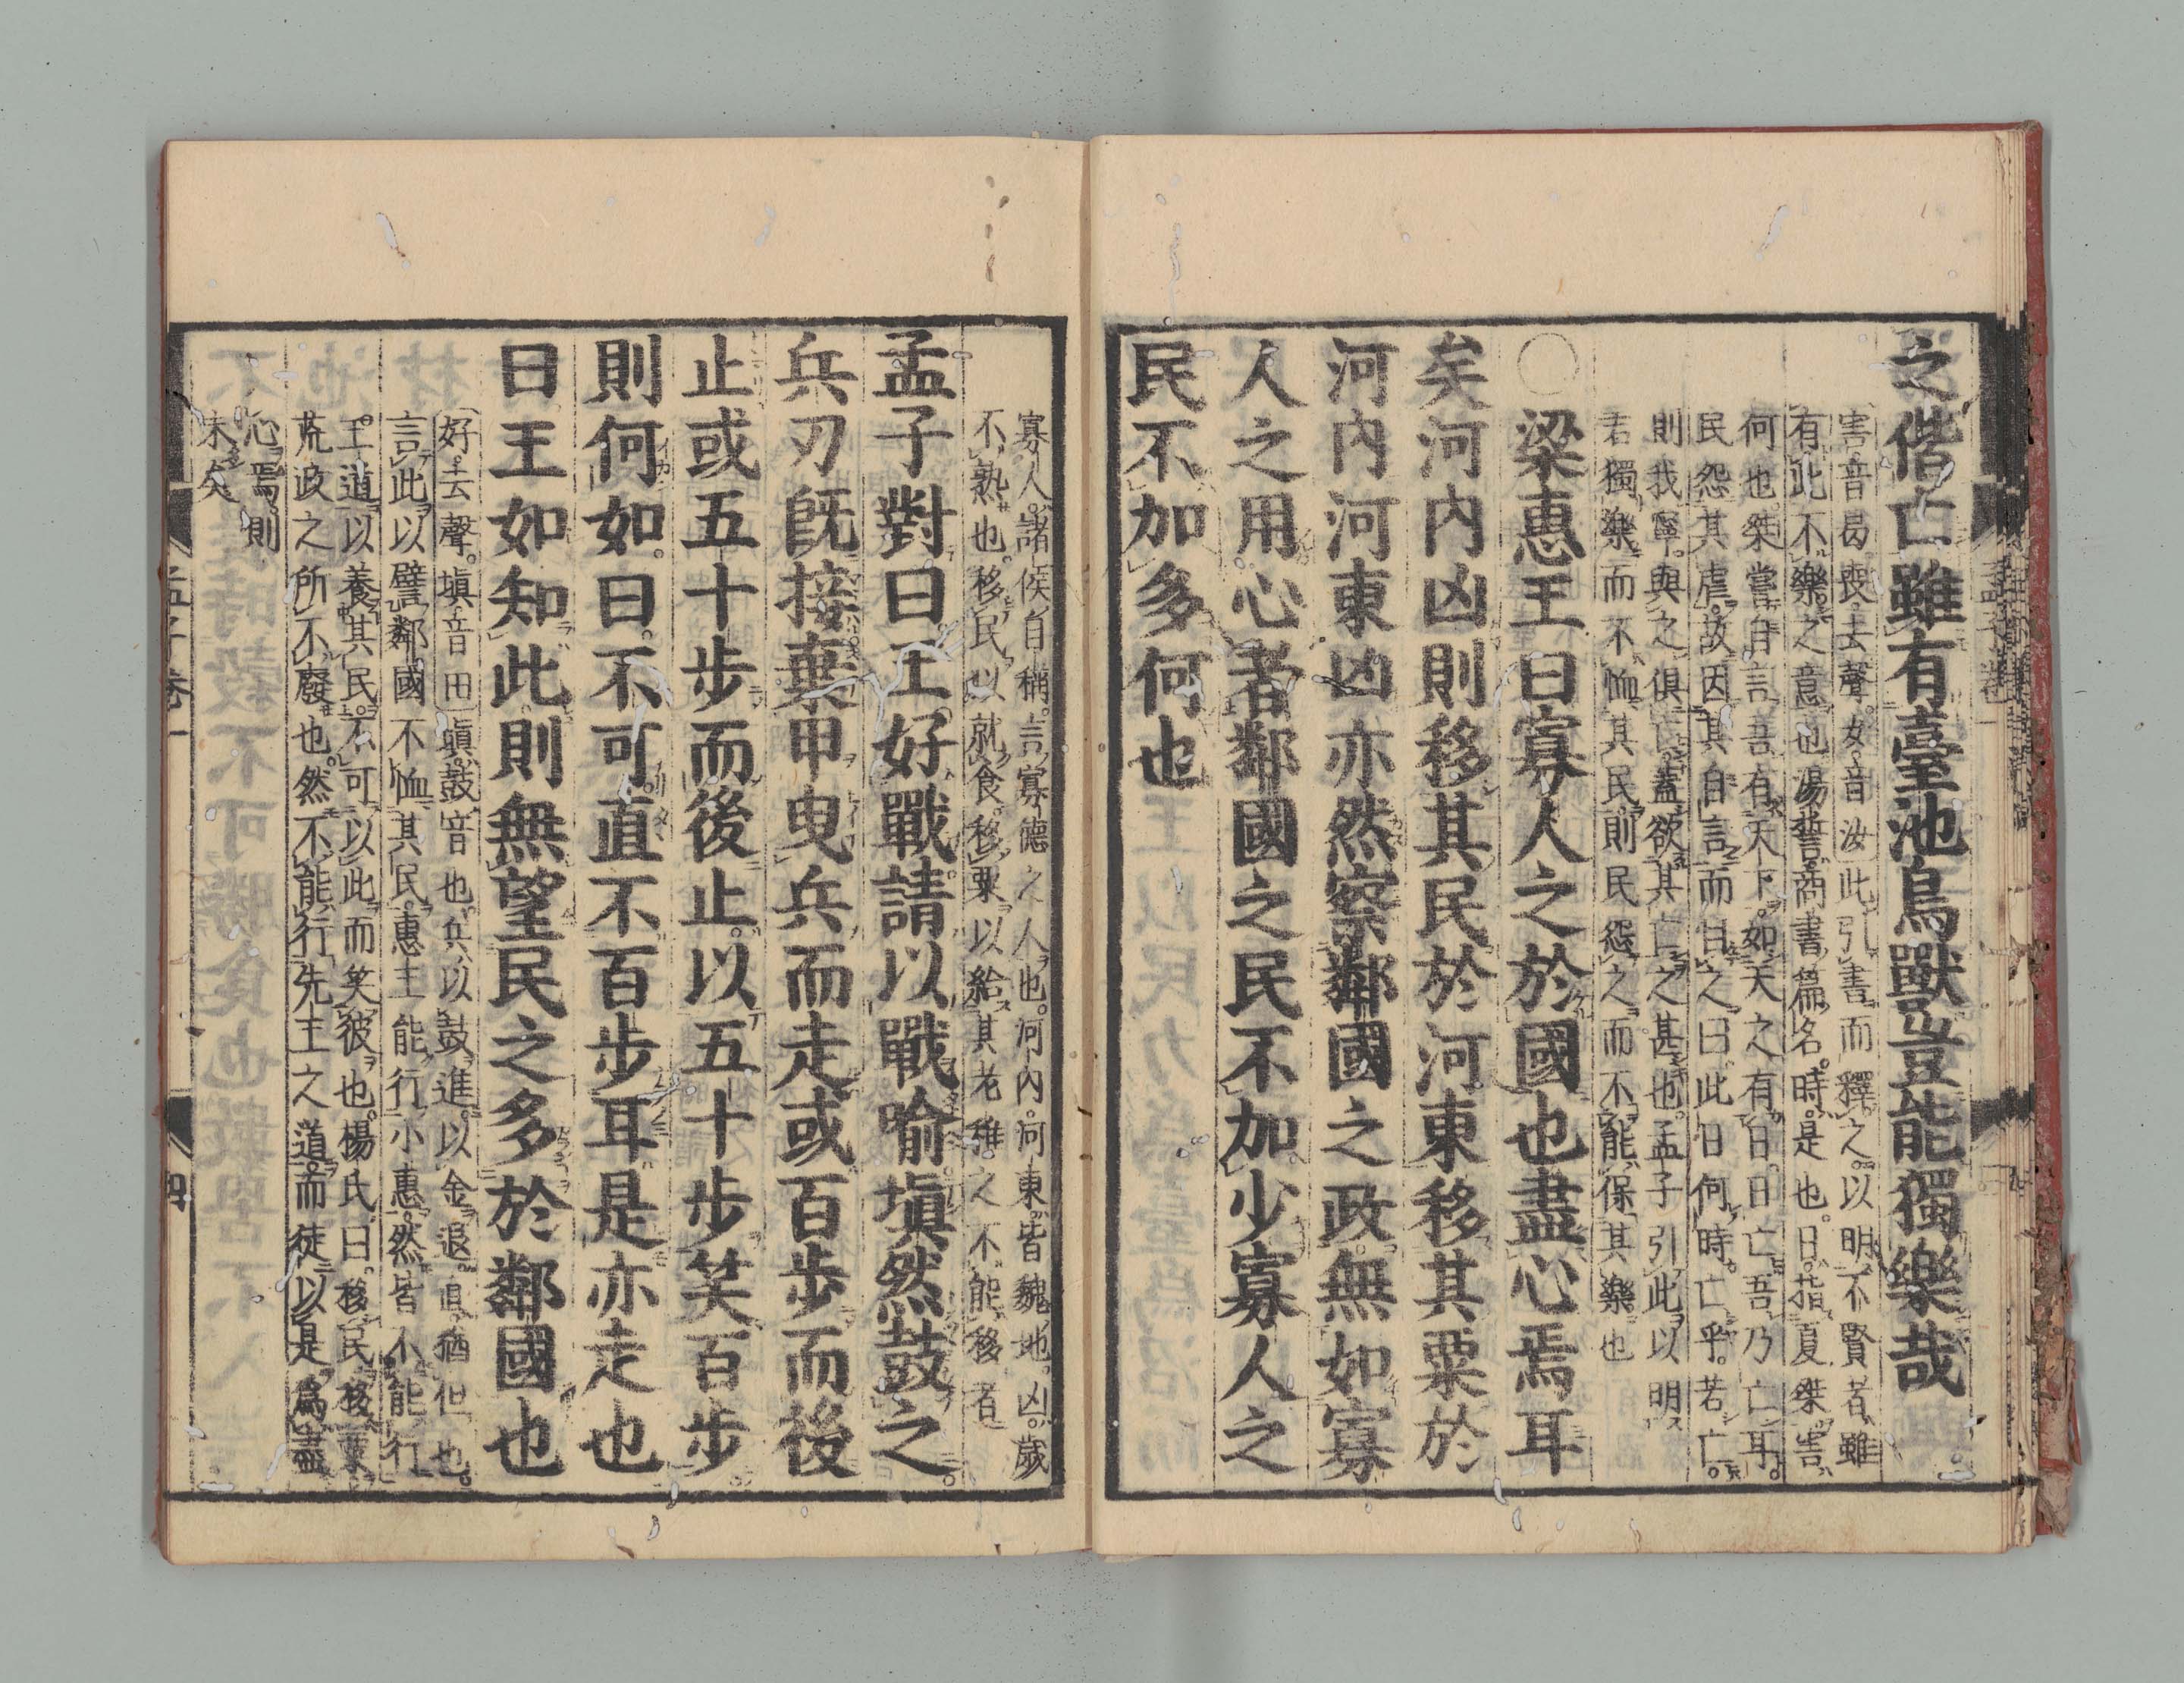 之偕亡雖有臺池鳥獸豈能獨樂哉
害音曷喪去聲女音汝此引書而釋之以明不賢者雖
有此不樂之意也湯誓商書篇名時是也日指夏桀害
何也桀嘗自言吾有天下如天之有日日亡吾乃亡耳
民怨其虐故因其自言而目之曰此日何時亡乎若亡
則我寧與之俱亡蓋欲其亡之甚也孟子引此以明
君獨樂而不恤其民則民怨之而不能保其樂也
○梁惠王曰寡人之於國也盡心焉耳
矣河內凶則移其民於河東移其粟於
河內河東凶亦然察鄰國之政無如寡
人之用心者鄰國之民不加少寡人之
民不加多何也
寡人諸侯自稱言寡德之人也河內河東皆魏地凶歲
不熟也移民以就食移粟以給其老稚之不能移者
孟子對曰王好戰請以戰喻塡然鼓之
兵刃旣接棄甲曳兵而走或百步而後
止或五十步而後止以五十步笑百步
則何如曰不可直不百步耳是亦走也
曰王如知此則無望民之多於鄰國也
好去聲塡音田塡鼓音也兵以鼓進以金退直猶但也
言此以譬鄰國不恤其民惠王能行小惠然皆不能行
王道以養其民不可以此而笑彼也楊氏曰移民移粟
荒政之所不廢也然不能行先王之道而徒以是爲盡
心焉則
末矣
孟子卷一
四